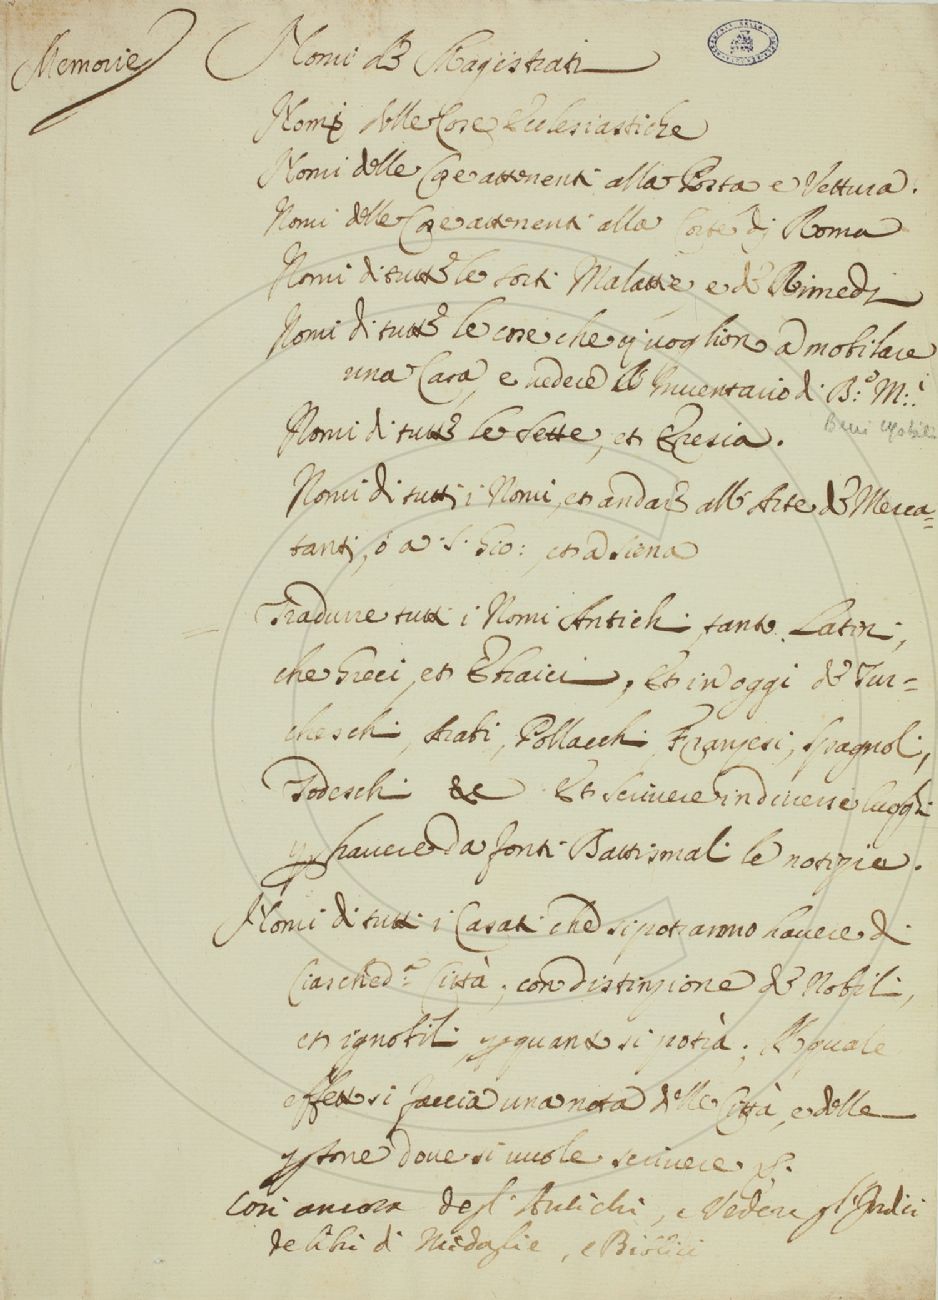 Memorie
Nomi de Magistrati
Nomi delle Cose Ecclesiastiche
Nomi delle Cose attenenti alla Posta e Vettura.
Nomi delle Cose attenenti alla Corte di Roma
Nomi di tutte le sorti Malattie e de Rimedi
Nomi di tutte le cose che vogliono a mobilare
una Casa, e vedere Inventario di B.o M.i
Beni Mobili
Nomi di tutte le Sette, et Eresia.
Nomi di tutti i Nomi, et andare all' Arte de Merca=
tanti, ò a S. Gio: et a Siena
Tradurre tutti i Nomi Antichi, tanto Latini,
che Greci, et Ebraici, Et in oggi de Tur=
cheschi, Arabi, Pollacchi, Franzesi, Spagnoli,
Todeschi &c Et scrivere in diverse luoghi
havere da fonti Battismali le notizie.
Nomi di tutti i Casati che si potranno havere di
Ciasched.a Città, con distinzione de Nobili,
et ignobili, quanto si potrà; quale
effetto si faccia una nota delle Città, e delle
dove si vuole scrivere.
Così ancora degl' Antichi, e Vedere gl' Indici
de libri di Medaglie, e